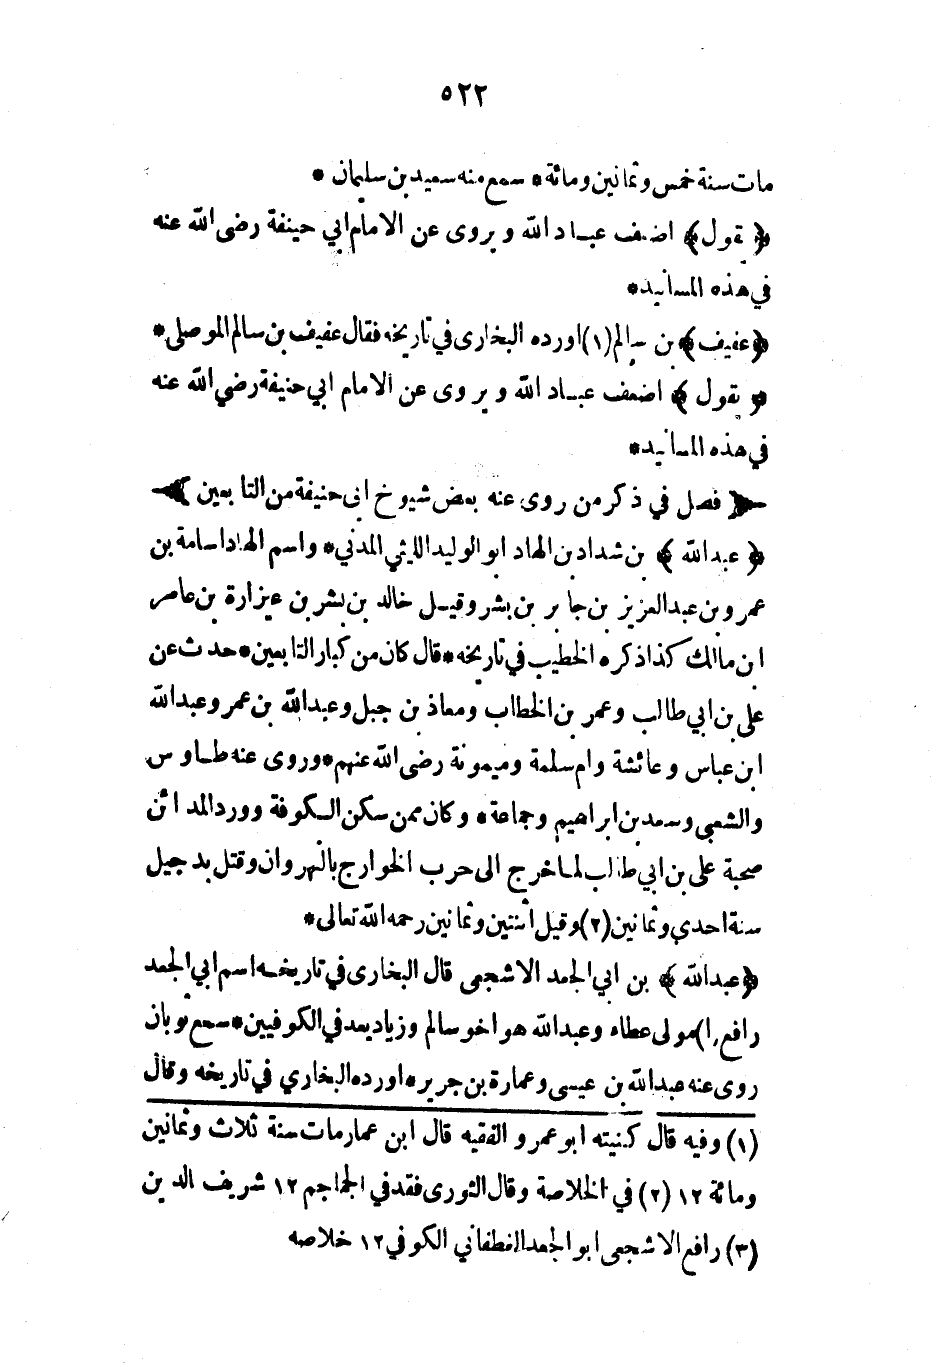 ٥٢٢
مات سنة خمس وثمانين ومائة* سمع منه سعيد بن سليمان *
﴿ يقول ﴾ اضعف عباد الله ويروى عن الامام ابي حنيفة رضى الله عنه
في هذه المسانيد*
﴿ عفيف ﴾ بن سالم (١) اورده البخارى في تاريخه فقال عفيف بن سالم الموصلى*
﴿ يقول ﴾ اضعف عباد الله ويروى عن الامام ابي حنيفة رضي الله عنه
في هذه المسانيد*
﴿ فصل في ذكر من روى عنه بعض شيوخ ابى حنيفة من التابعين ﴾
﴿ عبدالله ﴾ بن شداد بن الهاد ابو الوليد الليثي المدني* واسم الهاد اسامة بن
عمرو بن عبد العزيز بن جابر بن بشر وقيل خالد بن بشر بن عيزارة بن عاصر
ابن مالك كذا ذكره الخطيب في تاريخه* قال كان من كبار التابعين* حدث عن
علي بن ابي طالب وعمر بن الخطاب ومعاذ بن جبل وعبدالله بن عمر وعبدالله
ابن عباس وعائشة وام سلمة وميمونة رضى الله عنهم* وروى عنه طاوس
والشعبي وسعد بن ابراهيم وجماعة* وكان ممن سكن الكوفة وورد المدائن
صحبة على بن ابي طالب لما خرج الى حرب الخوارج بالنهروان وقتل بدجيل
سنة احدي وثمانين (٢) وقيل اثنتين وثمانين رحمه الله تعالى*
﴿ عبدالله ﴾ بن ابي الجعد الاشجعى قال البخارى في تاريخه اسم ابي الجعد
رافع (١) مولى عطاء وعبدالله هو اخو سالم وزياد يعد في الكوفيين* سمع ثوبان
روى عنه عبدالله بن عيسى وعمارة بن جرير* اورده البخاري في تاريخه وقال
(١) وفيه قال كنيته ابو عمرو الفقيه قال ابن عمار مات سنة ثلاث وثمانين
ومائة ١٢ (٢) في الخلاصة وقال الثورى فقد في الجماجم ١٢ شريف الدين
(٣) رافع الاشجعى ابو الجعد الغطفاني الكوفي ١٢ خلاصه